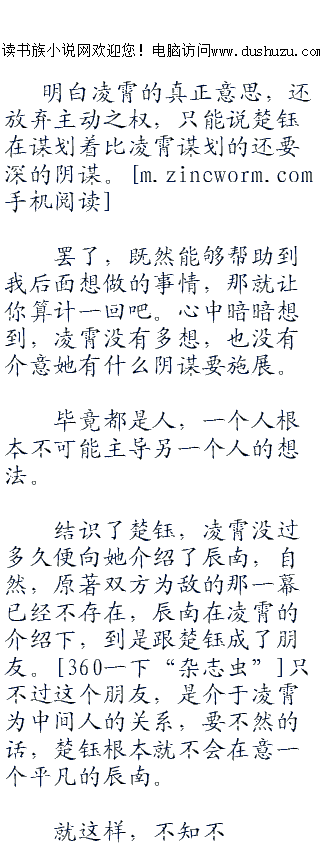 读书族小说网欢迎您！电脑访问www.dushuzu.com
明白凌霄的真正意思，还
放弃主动之权，只能说楚钰
在谋划着比凌霄谋划的还要
深的阴谋。[m.zincworm.com
手机阅读]
罢了，既然能够帮助到
我后面想做的事情，那就让
你算计一回吧。心中暗暗想
到，凌霄没有多想，也没有
介意她有什么阴谋要施展。
毕竟都是人，一个人根
本不可能主导另一个人的想
法。
结识了楚钰，凌霄没过
多久便向她介绍了辰南，自
然，原著双方为敌的那一幕
已经不存在，辰南在凌霄的
介绍下，到是跟楚钰成了朋
友。[360一下“杂志虫”]只
不过这个朋友，是介于凌霄
为中间人的关系，要不然的
话，楚钰根本就不会在意一
个平凡的辰南。
就这样，不知不